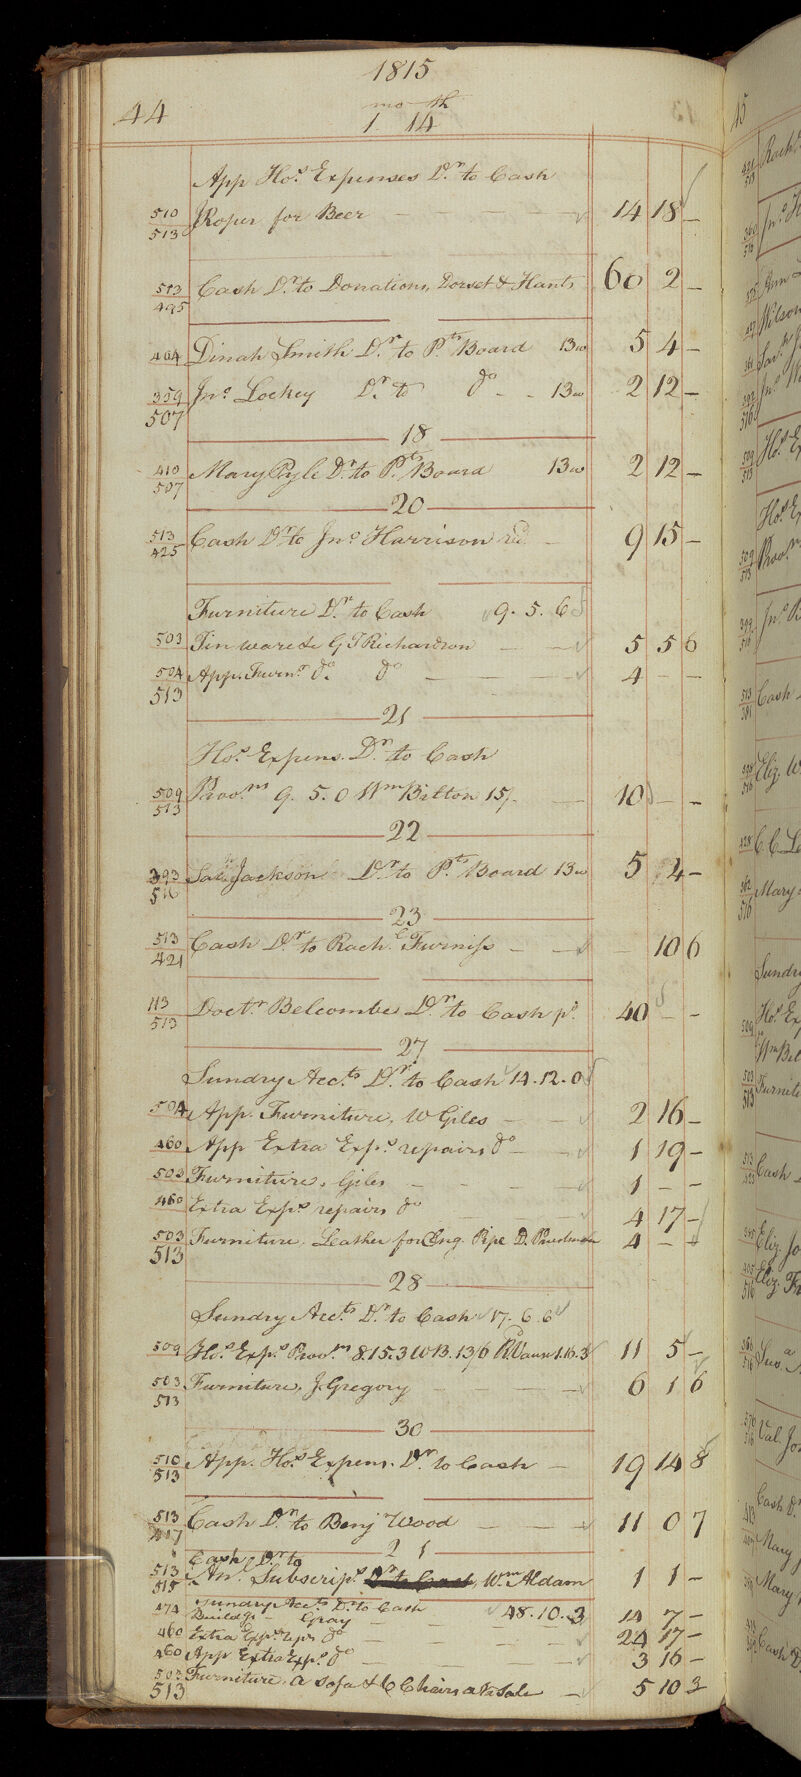 1815
44
mo th
1 14
App Hos. Expenses Dr. to Cash
510 JRoper for Beer 14 18 –
513
513 Cash Dr. to Donations, Dorset & Hants 60 2 –
495
464 Dinah Smith Dr. to Pts. Board 13w 5 4 –
359 Jno. Lockey Dr. to do 13w 2 12 –
507
18
410 Mary Pyle Dr. to Pts. Board 13w 2 12 –
507
20
513 Cash Dr. to Jno. Harrison 9 15 –
425
Furniture Dr. to Cash 9. 5. 6
503 Tin ware &c G T Richardson 5 5 6
504 App. Furnre. do. do 4 – –
513
21
Hos. Expens. Dr. to Cash
509 Provns. 9. 5. 0 Wm Bilton 15/. 10 – –
513
22
393 Sarh. Jackson Dr. to Pts. Board 13w 5 4 –
516
23
513 Cash Dr. to Rachl. Furniss – 10 6
421
113 Doctr. Belcombe Dr. to Cash pd. 40 – –
513
27
Sundry Accts. Dr. to Cash 14. 12. 0
504 App. Furniture, W Giles 2 16 –
460 App Extra Exps. repairs do 1 19 –
503 Furniture, Giles 1 – –
460 Extra Exps. repairs do 4 17 –
503 Furniture. Leather for Eng. Pipe D. Priestman 4 – –
513
28
Sundry Accts. Dr. to Cash 17. 6. 6
509 Hos. Exps. Provns. 8.15.3 WB. 13/6 1.16.3 11 5 –
503 Furniture, J. Gregory 6 1 6
513
30
510 App. Hos. Expens. Dr. to Cash 19 14 8
513
513 Cash Dr. to Benj Wood 11 0 7
417
2 1
Cash Dr. to
513 Anl. Subscrips. Dr to Cash, Wm. Aldam 1 1 –
515
Sundry Accts. Dr. to Cash 48. 10. 3
474 Buildgs – Gray 14 7 –
460 Extra Exps. reps. do 24 17 –
460 App Extra Exps. do 3 16 –
503 Furniture. a Sofa & 6 Chairs at a Sale 5 10 3
513
45